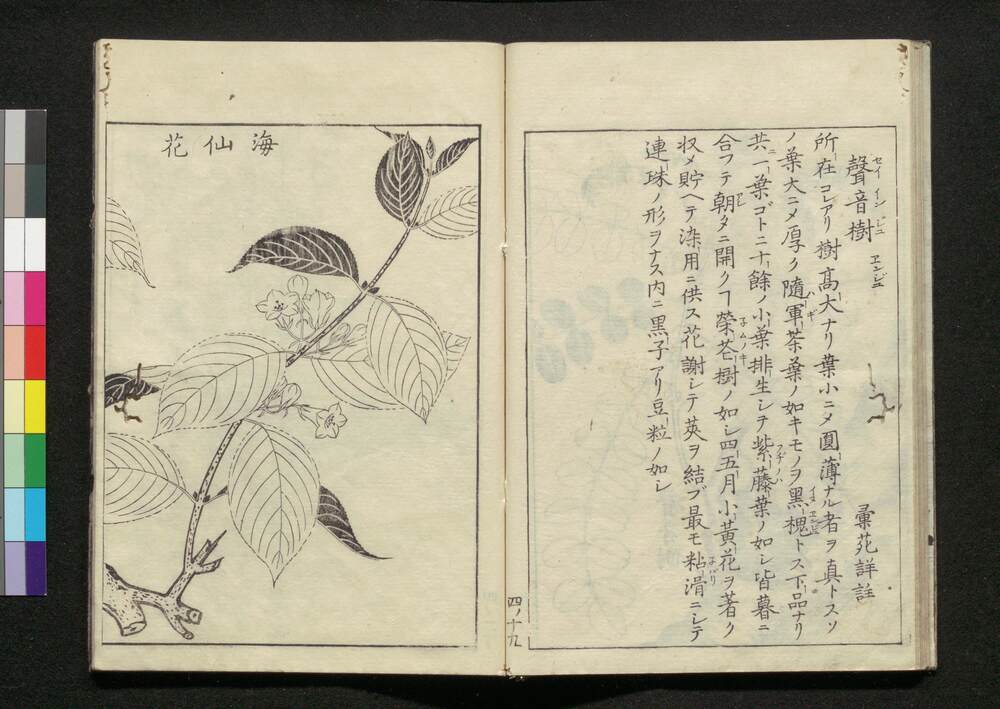 聲音樹 セイインジュ ヱンジュ 彙苑詳註
所在コレアリ樹高大ナリ葉小ニメ圓薄ナル者ヲ真トスソ
ノ葉大ニメ厚ク隨軍茶葉ノ如キモノヲ黒槐トス下品ナリ
共ニ一葉ゴトニ十餘ノ小葉排生シテ紫藤葉ノ如シ皆暮ニ
合フテ朝タニ開クヿ榮荅樹ノ如シ四五月小黄花ヲ著ク
収メ貯ヘテ染用ニ供ス花謝シテ莢ヲ結ブ最モ粘滑ニシテ
連珠ノ形ヲナス内ニ黒子アリ豆粒ノ如シ
四ノ十九
海仙花